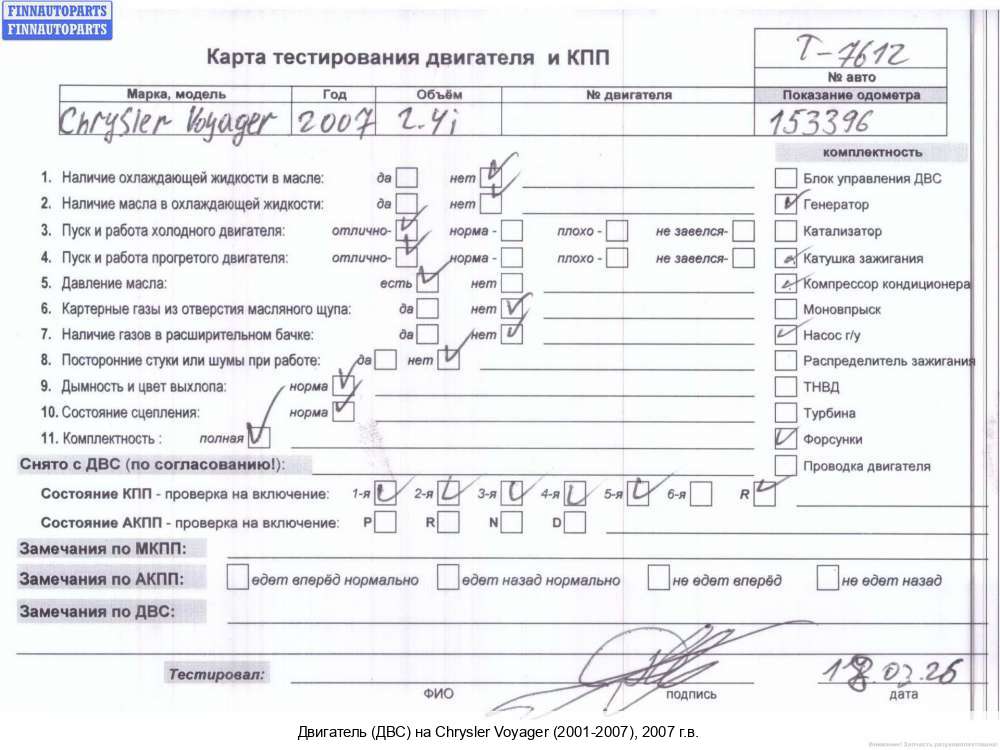 FINNAUTOPARTS
FINNAUTOPARTS
Карта тестирования двигателя и КПП
T-7612
№ авто
Марка, модель Год Объём № двигателя Показание одометра
Chrysler Voyager 2007 2.4i 153396
комплектность
1. Наличие охлаждающей жидкости в масле: да нет Блок управления ДВС
2. Наличие масла в охлаждающей жидкости: да нет Генератор
3. Пуск и работа холодного двигателя: отлично- норма - плохо - не завелся- Катализатор
4. Пуск и работа прогретого двигателя: отлично- норма - плохо - не завелся- Катушка зажигания
5. Давление масла: есть нет Компрессор кондиционера
6. Картерные газы из отверстия масляного щупа: да нет Моновпрыск
7. Наличие газов в расширительном бачке: да нет Насос г/у
8. Посторонние стуки или шумы при работе: да нет Распределитель зажигания
9. Дымность и цвет выхлопа: норма ТНВД
10. Состояние сцепления: норма Турбина
11. Комплектность : полная Форсунки
Снято с ДВС (по согласованию!): Проводка двигателя
Состояние КПП - проверка на включение: 1-я 2-я 3-я 4-я 5-я 6-я R
Состояние АКПП - проверка на включение: P R N D
Замечания по МКПП:
Замечания по АКПП: едет вперёд нормально едет назад нормально не едет вперёд не едет назад
Замечания по ДВС:
Тестировал: 18.03.26
ФИО подпись дата
Двигатель (ДВС) на Chrysler Voyager (2001-2007), 2007 г.в.
Внимание! Запчасть разукомплектована!